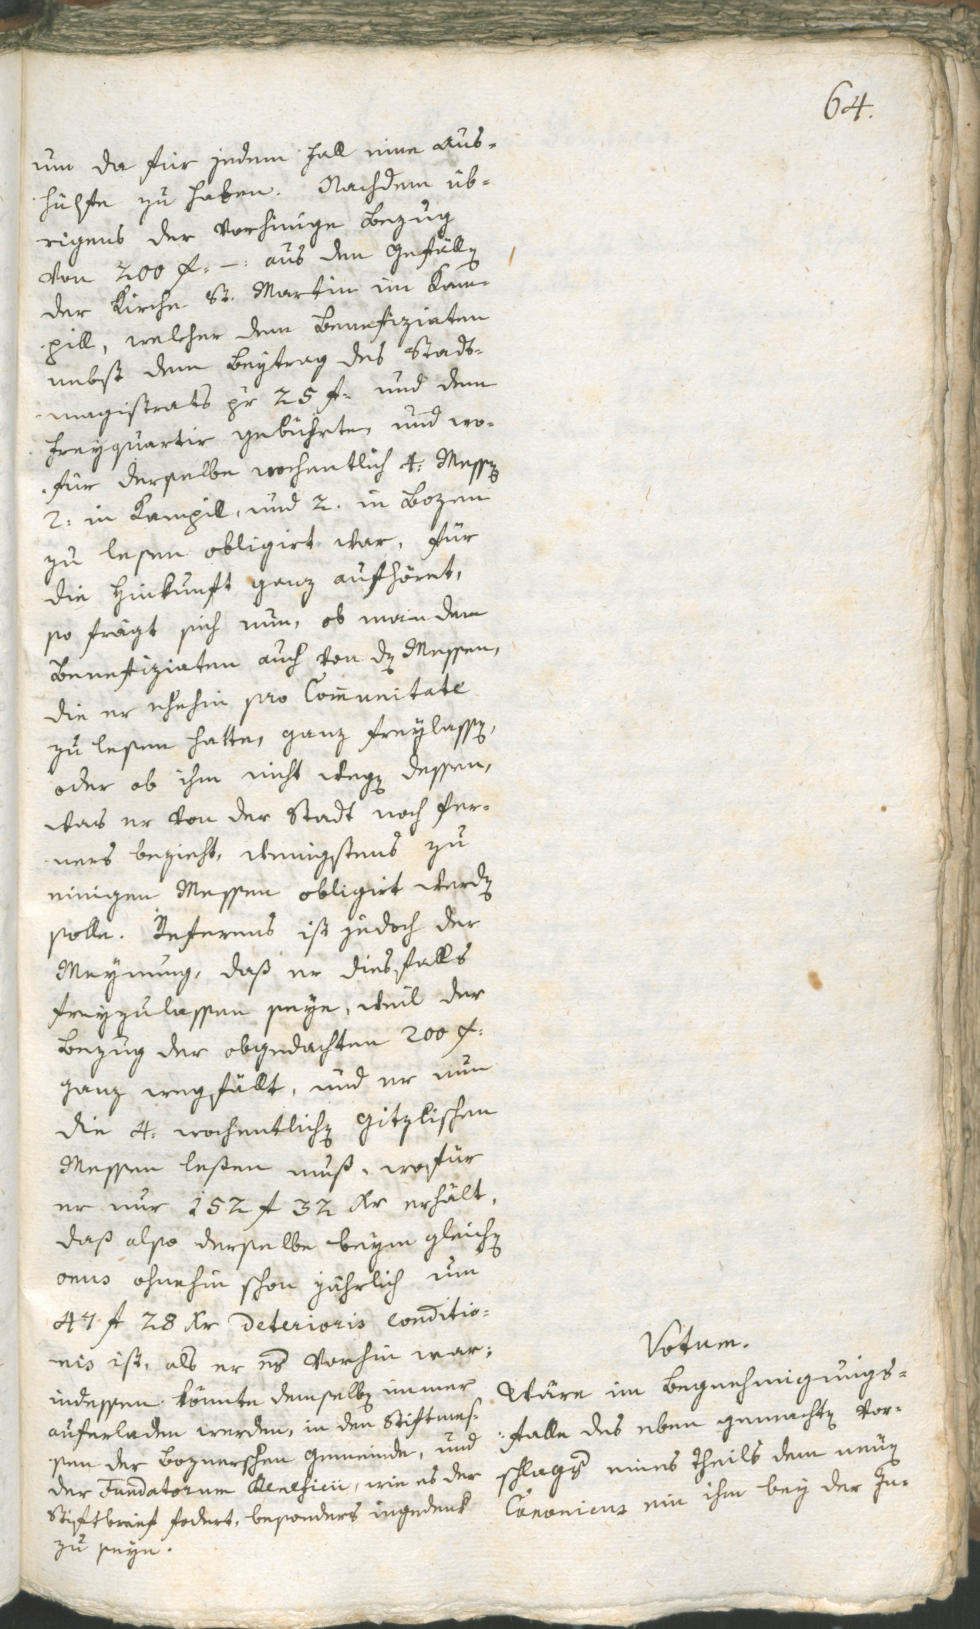 64.
um da für jedem Fall eine Aus-
hülfe zu haben. Nachdem üb-
rigens der vorhinige Bezug
von 200 f: –: aus den Gefällen
der Kirche St. Martin im Kam-
pill, welcher dem Benefiziaten
nebst dem Beytrag des Stadt-
magistrats pr 25 f. und dem
Freyquartir gebührte, und wo-
für derselbe wochentlich 4: Messen
2: in Kampill, und 2. in Bozen
zu lesen obligirt war, für
die Hinkunft ganz aufhöret,
so frägt sich nun, ob man dem
Benefiziaten auch von den Messen,
die er ehehin pro Comunitate
zu lesen hatte, ganz freylassen,
oder ob ihm nicht wegen dessen,
was er von der Stadt noch fer-
ners bezieht, wenigstens zu
einigen Messen obligirt werden
solle. Referens ist jedoch der
Meynung, daß er diesfalls
freyzulassen seye, weil der
Bezug der obgedachten 200 f:
ganz wegfällt, und er nun
die 4. wochentlichen Gitzlischen
Messen lesen muß, wofür
er nur 152 f 32 Kr erhält,
daß also derselbe beym gleichen
onus ohnehin schon jährlich um
47 f 28 Kr deterioris conditio-
nis ist, als er es vorhin war;
indessen könnte demselben immer
auferladen werden, in den Stiftmes-
sen der Boznerschen Gemeinde, und
der Fundatorum Beneficii, wie es der
Stiftbrief fodert, besonders ingedenk
zu seyn.
Votum.
Wäre im Begnehmigungs-
falle des eben gemachten Vor-
schlags eines Theils dem neuen
Canonicus ein ihm bey der In-